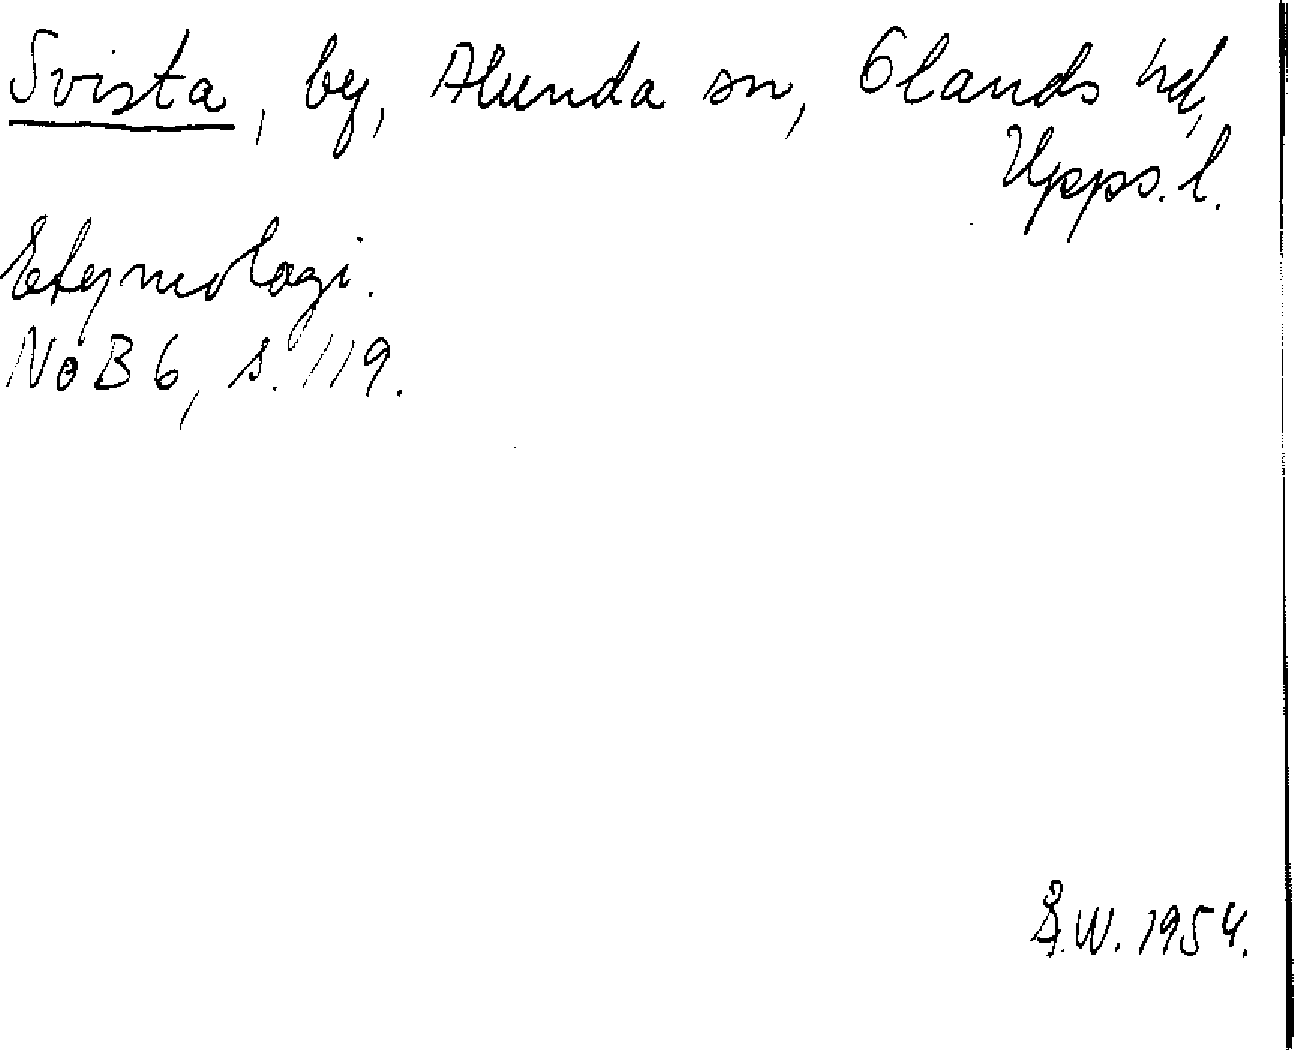 Svista, by, Alunda sn, Olands hd,
Upps. l.
Etymologi.
NoB 6, s. 119.
Å.W. 1954.